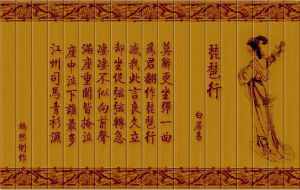 琵琶行
白居易
莫辭更坐彈一曲
為君翻作琵琶行
感我此言良久立
却坐促弦弦轉急
淒淒不似向前聲
滿座重聞皆掩泣
座中泣下誰最多
江州司馬青衫濕
嫣然制作